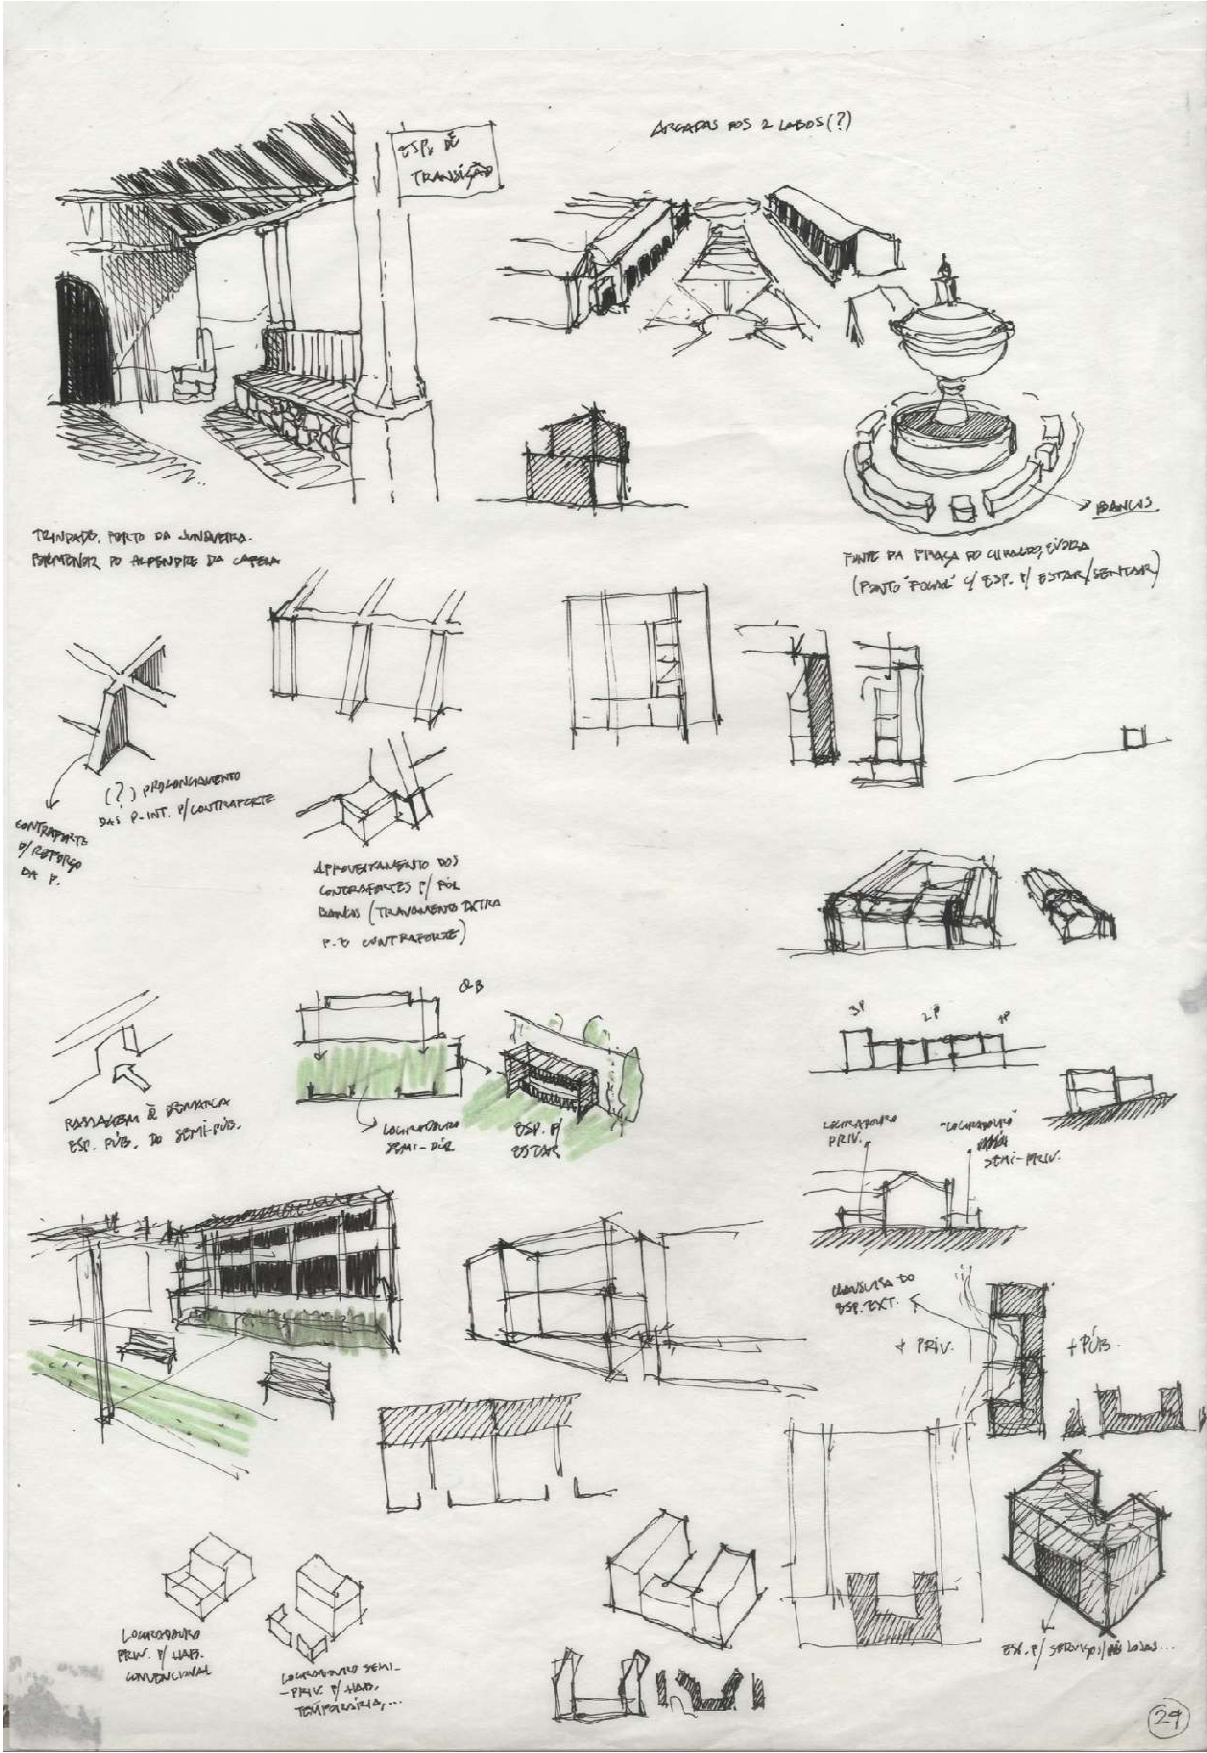 ESP. DE
TRANSIÇÃO
ARCADAS DOS 2 LADOS (?)
TRINDADE, PORTO DA JUNQUEIRA.
PORMENOR DO ALPENDRE DA CAPELA
BANCOS.
FONTE DA PRAÇA DO GIRALDO, ÉVORA
(PONTO "FOCAL" C/ ESP. P/ ESTAR/SENTAR)
(?) PROLONGAMENTO
DAS P. INT. P/ CONTRAFORTE
CONTRAFORTE
P/ REFORÇO
DA P.
APROVEITAMENTO DOS
CONTRAFORTES P/ PÔR
BANCOS (TRAVAMENTO EXTRA
P. O CONTRAFORTE)
PASSAGEM Q DEMARCA
ESP. PÚB. DO SEMI-PÚB.
LOGRADOURO
ESP. P/
ESTAR
3P
2P
1P
LOGRADOURO
PRIV.
"LOGRADOURO"
SEMI-PRIV.
CLAUSURA DO
ESP. EXT.
+ PRIV.
+ PÚB.
LOGRADOURO
PRIV. P/ HAB.
CONVENCIONAL
LOGRADOURO SEMI-
-PRIV. P/ HAB.
TEMPORÁRIA,...
ESP. P/ SERVIÇOS/ LOJAS...
29